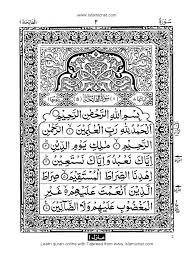 www.islamicnet.com
الفاتحة ١
٢
سورة
بِسْمِ اللهِ الرَّحْمٰنِ الرَّحِيْمِ
اَلْحَمْدُ لِلّٰهِ رَبِّ الْعٰلَمِيْنَ الرَّحْمٰنِ
الرَّحِيْمِ مٰلِكِ يَوْمِ الدِّيْنِ
اِيَّاكَ نَعْبُدُ وَاِيَّاكَ نَسْتَعِيْنُ
اِهْدِنَا الصِّرَاطَ الْمُسْتَقِيْمَ صِرَاطَ
الَّذِيْنَ اَنْعَمْتَ عَلَيْهِمْ غَيْرِ
الْمَغْضُوْبِ عَلَيْهِمْ وَلَا الضَّآلِّيْنَ
Learn quran online with Tajweed from www.islamicnet.com